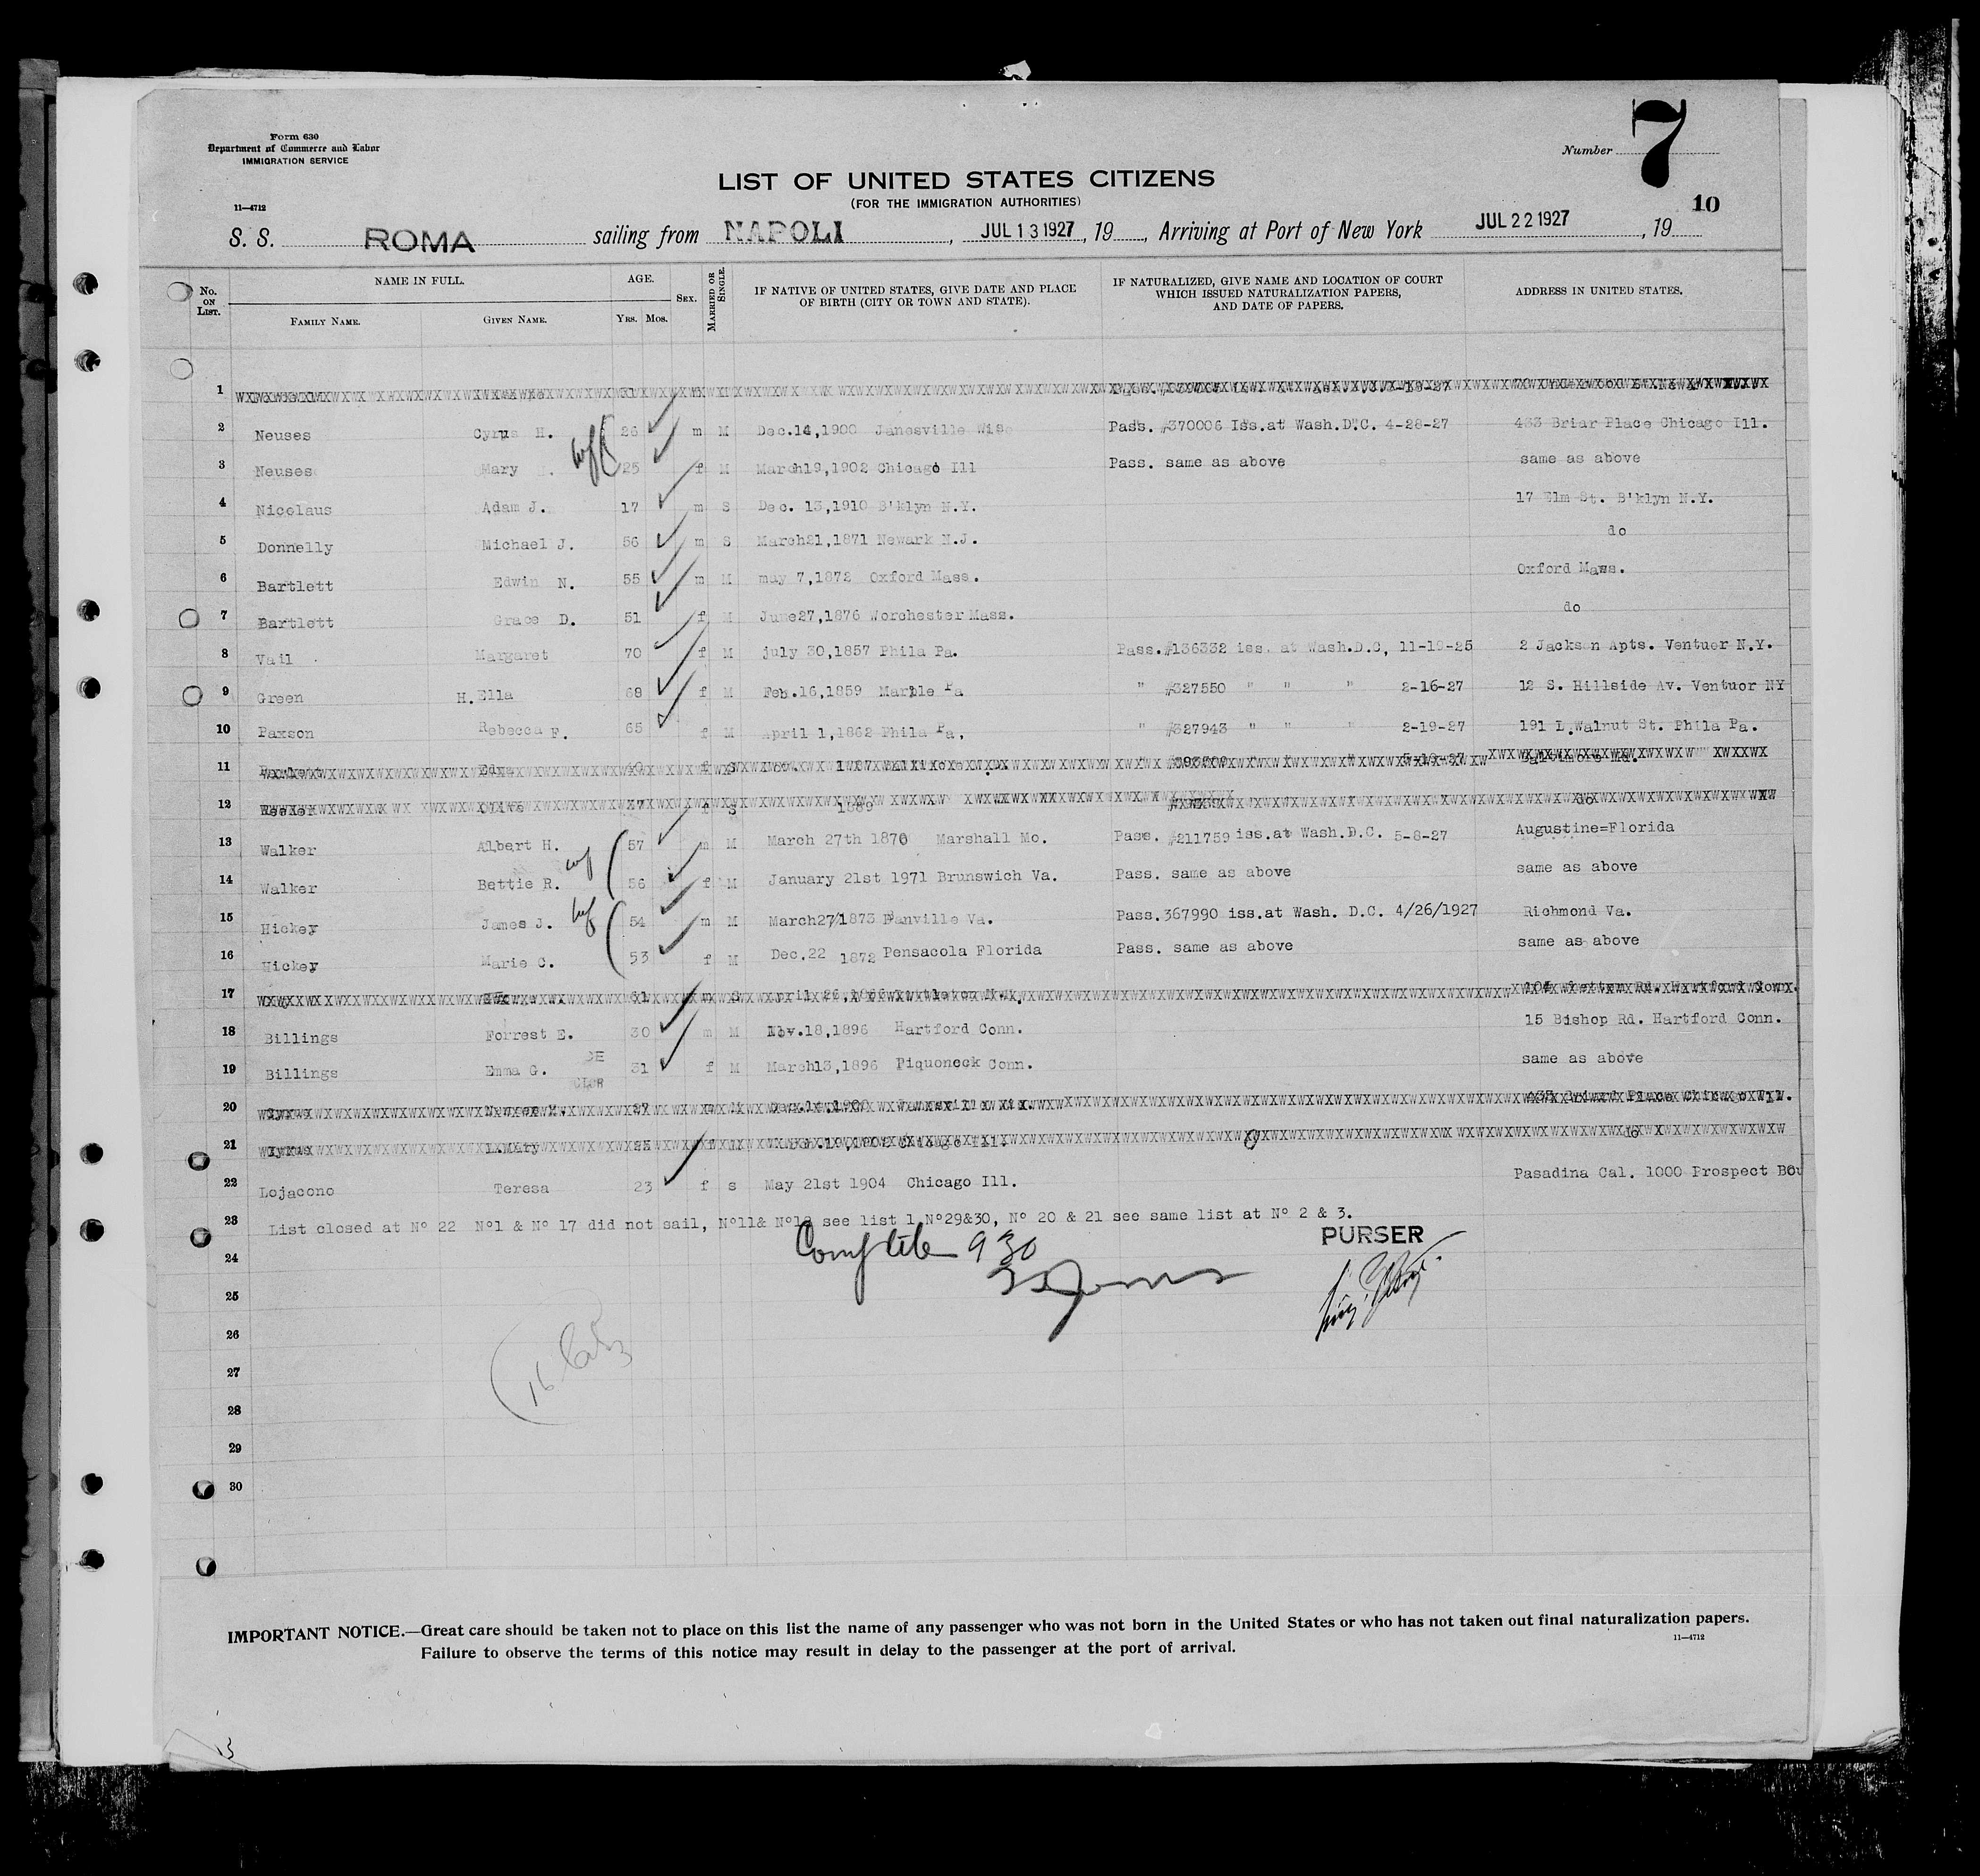 Form 630
Department of Commerce and Labor
IMMIGRATION SERVICE
Number 7
LIST OF UNITED STATES CITIZENS
(FOR THE IMMIGRATION AUTHORITIES)
10
11—4712
S. S. ROMA sailing from NAPOLI, JUL 13 1927, 19, Arriving at Port of New York JUL 22 1927, 19
No. ON LIST. NAME IN FULL. FAMILY NAME. GIVEN NAME. AGE. YRS. MOS. SEX. MARRIED OR SINGLE. IF NATIVE OF UNITED STATES, GIVE DATE AND PLACE OF BIRTH (CITY OR TOWN AND STATE). IF NATURALIZED, GIVE NAME AND LOCATION OF COURT WHICH ISSUED NATURALIZATION PAPERS, AND DATE OF PAPERS. ADDRESS IN UNITED STATES.
1
2 Neuses Cyrus H. 26 m M Dec.14,1900 Janesville Wisc Pass. #370006 Iss.at Wash.D"C. 4-28-27 433 Briar Place Chicago Ill.
3 Neuses Mary 25 f M March19,1902 Chicago Ill Pass. same as above same as above
4 Nicolaus Adam J. 17 m S Dec. 13,1910 B'klyn N.Y. 17 Elm St. B'klyn N.Y.
5 Donnelly Michael J. 56 m S March21,1871 Newark N.J. do
6 Bartlett Edwin N. 55 m M may 7,1872 Oxford Mass. Oxford Maws.
7 Bartlett Grace D. 51 f M June27,1876 Worchester Mass. do
8 Vail Margaret 70 f M july 30,1857 Phila Pa. Pass.#136332 iss. at Wash.D.C, 11-19-25 2 Jackson Apts. Ventuer N.Y.
9 Green H.Ella 68 f M Feb.16,1859 Marple Pa " #327550 " " " 2-16-27 12 S. Hillside Av. Ventuor NY
10 Paxson Rebecca F. 65 f M April 1,1862 Phila Pa, " #327943 " " " 2-19-27 191 L.Walnut St. Phila Pa.
11 Edna f S Baltimore Md.
12 Olive 37 f S 1889 do
13 Walker Albert H. 57 m M March 27th 1870 Marshall Mo. Pass. #211759 iss.at Wash.D.C. 5-8-27 Augustine=Florida
14 Walker Bettie R. 56 f M January 21st 1971 Brunswich Va. Pass. same as above same as above
15 Hickey James J. 54 m M March27/1873 Danville Va. Pass.367990 iss.at Wash. D.C. 4/26/1927 Richmond Va.
16 Hickey Marie C. 53 f M Dec.22 1872 Pensacola Florida Pass. same as above same as above
17 61 m S April 26,1866 Hartford Conn.
18 Billings Forrest E. 30 m M Nov.18,1896 Hartford Conn. 15 Bishop Rd. Hartford Conn.
19 Billings Emma G. 31 f M March13,1896 Piquoneck Conn. same as above
20 Cyrus Neuses H. 27 m M Dec.14,1900 Janesville Wis. 433 Briard Place Chicago Ill.
21 Cyrus L.Mary f M Chicago Ill. do
22 Lojacono Teresa 23 f s May 21st 1904 Chicago Ill. Pasadina Cal. 1000 Prospect Bou
23 List closed at Nº 22 Nº1 & Nº 17 did not sail, Nº11& Nº12 see list 1 Nº29&30, Nº 20 & 21 see same list at Nº 2 & 3.
PURSER
Complete 9 30
24
25
26
27
28
29
30
IMPORTANT NOTICE.—Great care should be taken not to place on this list the name of any passenger who was not born in the United States or who has not taken out final naturalization papers.
Failure to observe the terms of this notice may result in delay to the passenger at the port of arrival.
11—4712